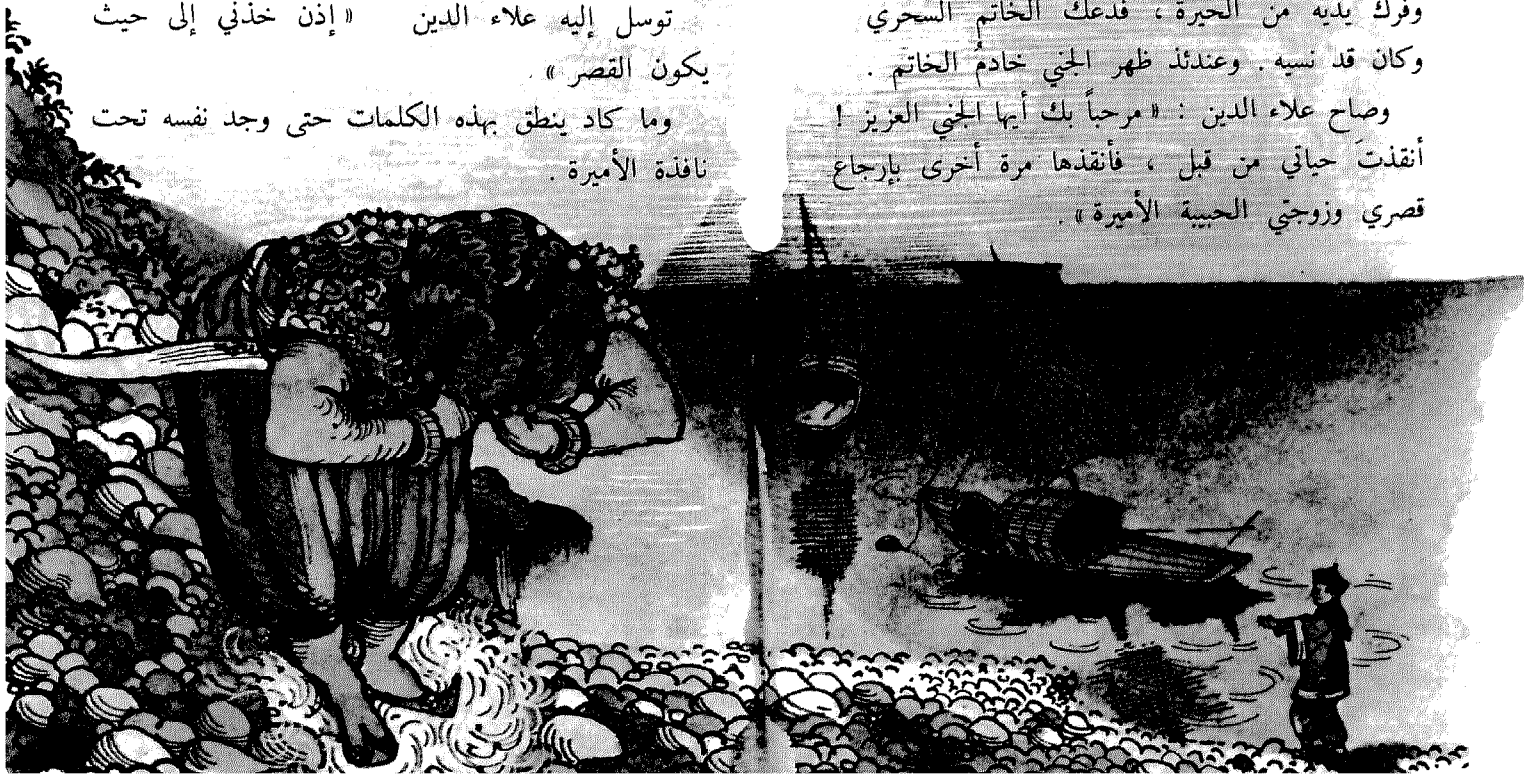 وفرك يديه من الحيرة ، فدعك الخاتم السحري
وكان قد نسيه . وعندئذ ظهر الجني خادمُ الخاتم .
وصاح علاء الدين : « مرحباً بك أيها الجني العزيز !
أنقذتَ حياتي من قبل ، فأنقذها مرة أخرى بإرجاع
قصري وزوجتي الحبيبة الأميرة » .
توسل إليه علاء الدين « إذن خذني إلى حيث
يكون القصر » .
وما كاد ينطق بهذه الكلمات حتى وجد نفسه تحت
نافذة الأميرة .